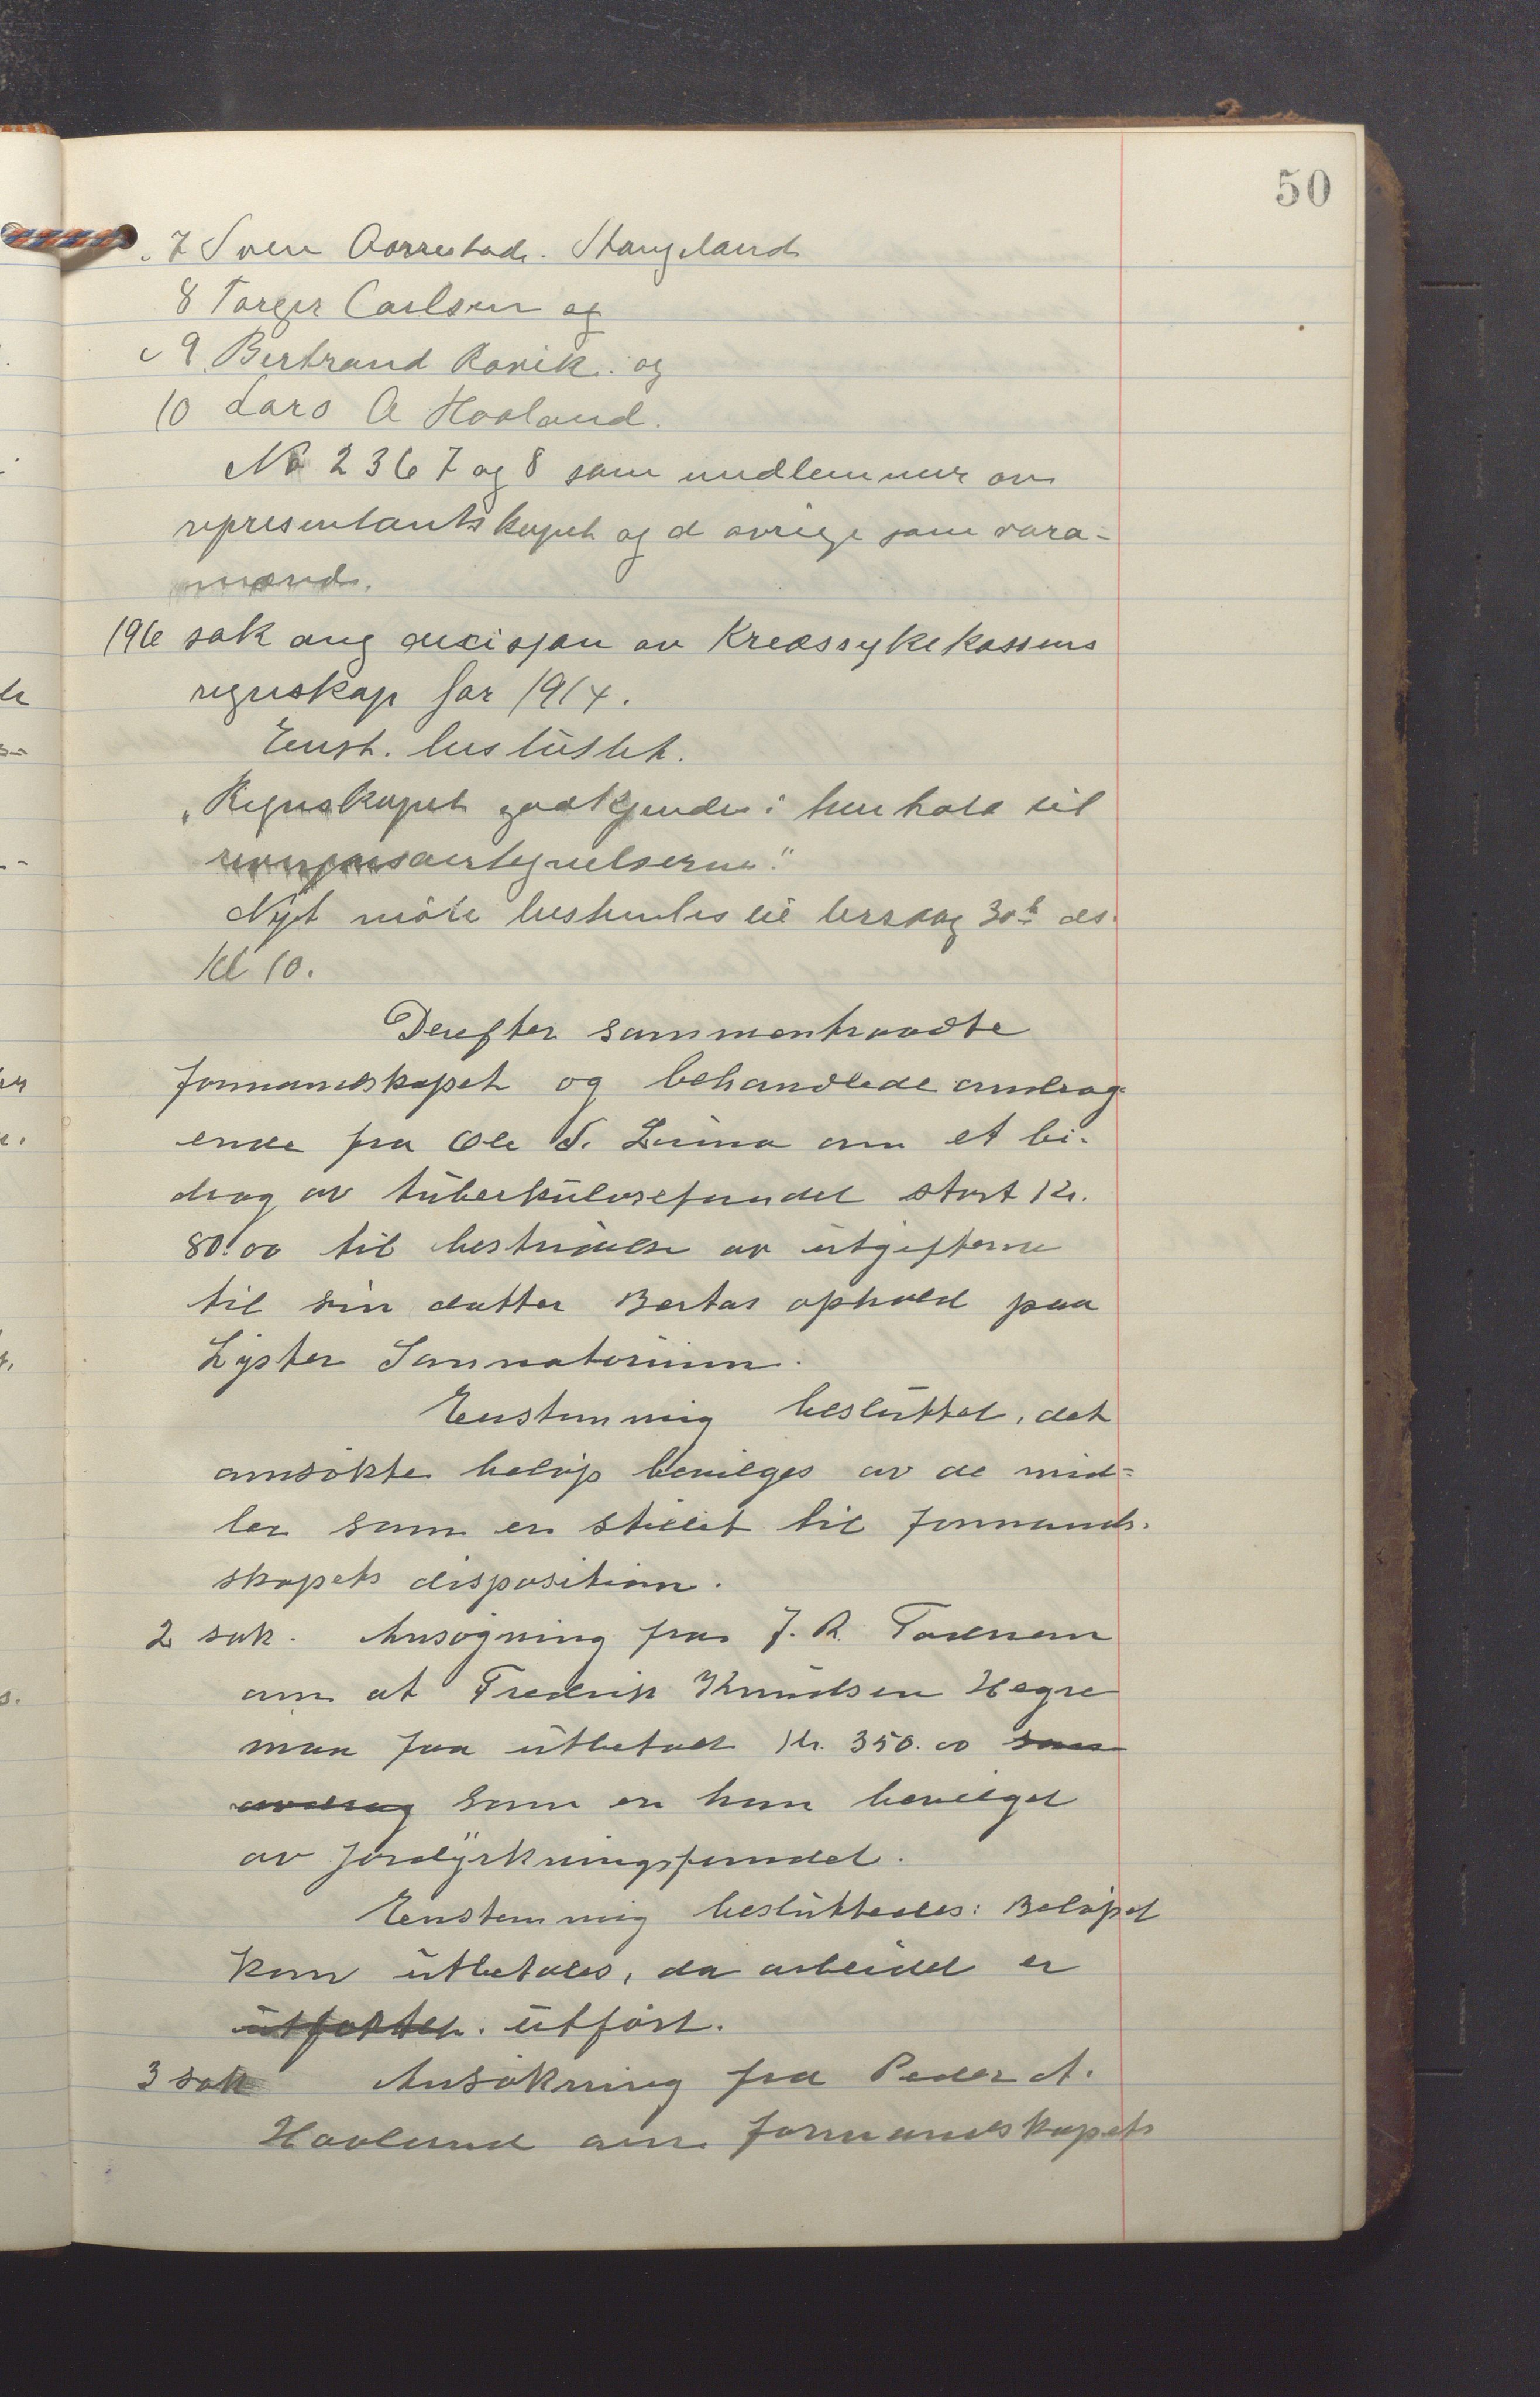 50
7 Sven Aarrestad. Stangeland
8 Torger Carlsen og
9 Bertrand Ravik. og
10 Lars A Haaland.
No 2 3 6 7 og 8 som medlemmer av
representantskapet og d øvrige som vara-
mænd.
196 sak ang decisjon av Kredssykekassens
regnskap for 1914.
Enst. besluttet.
„Regnskapet godkjendes i henhold til
antegnelserne."
Nyt møte bestemtes til tirsdag 30te ds.
Kl 10.
Derefter sammentraadte
formandskapet og behandlede andrag-
ende fra Ole S. Lima om et bi-
drag av tuberkulosefondet stort Kr.
80.00 til bestridelse av utgifterne
til sin datter Bertas ophold paa
Lyster Sannatorium.
Enstemmig besluttet, det
ansøkte beløp bevilges av de mid-
ler som er stillet til formands-
skapets disposition.
2 sak. Ansøgning fra J. R. Todnem
om at Fredrik Knudsen Hegre
maa faa utbetalt Kr. 350.00 som
avdrag som er ham bevilget
av jordyrkningsfondet.
Enstemmig besluttedes: Beløpet
kan utbetales, da arbeidet er
utført.
3 sak Ansøkning fra Peder A.
Haaland om formandskapets